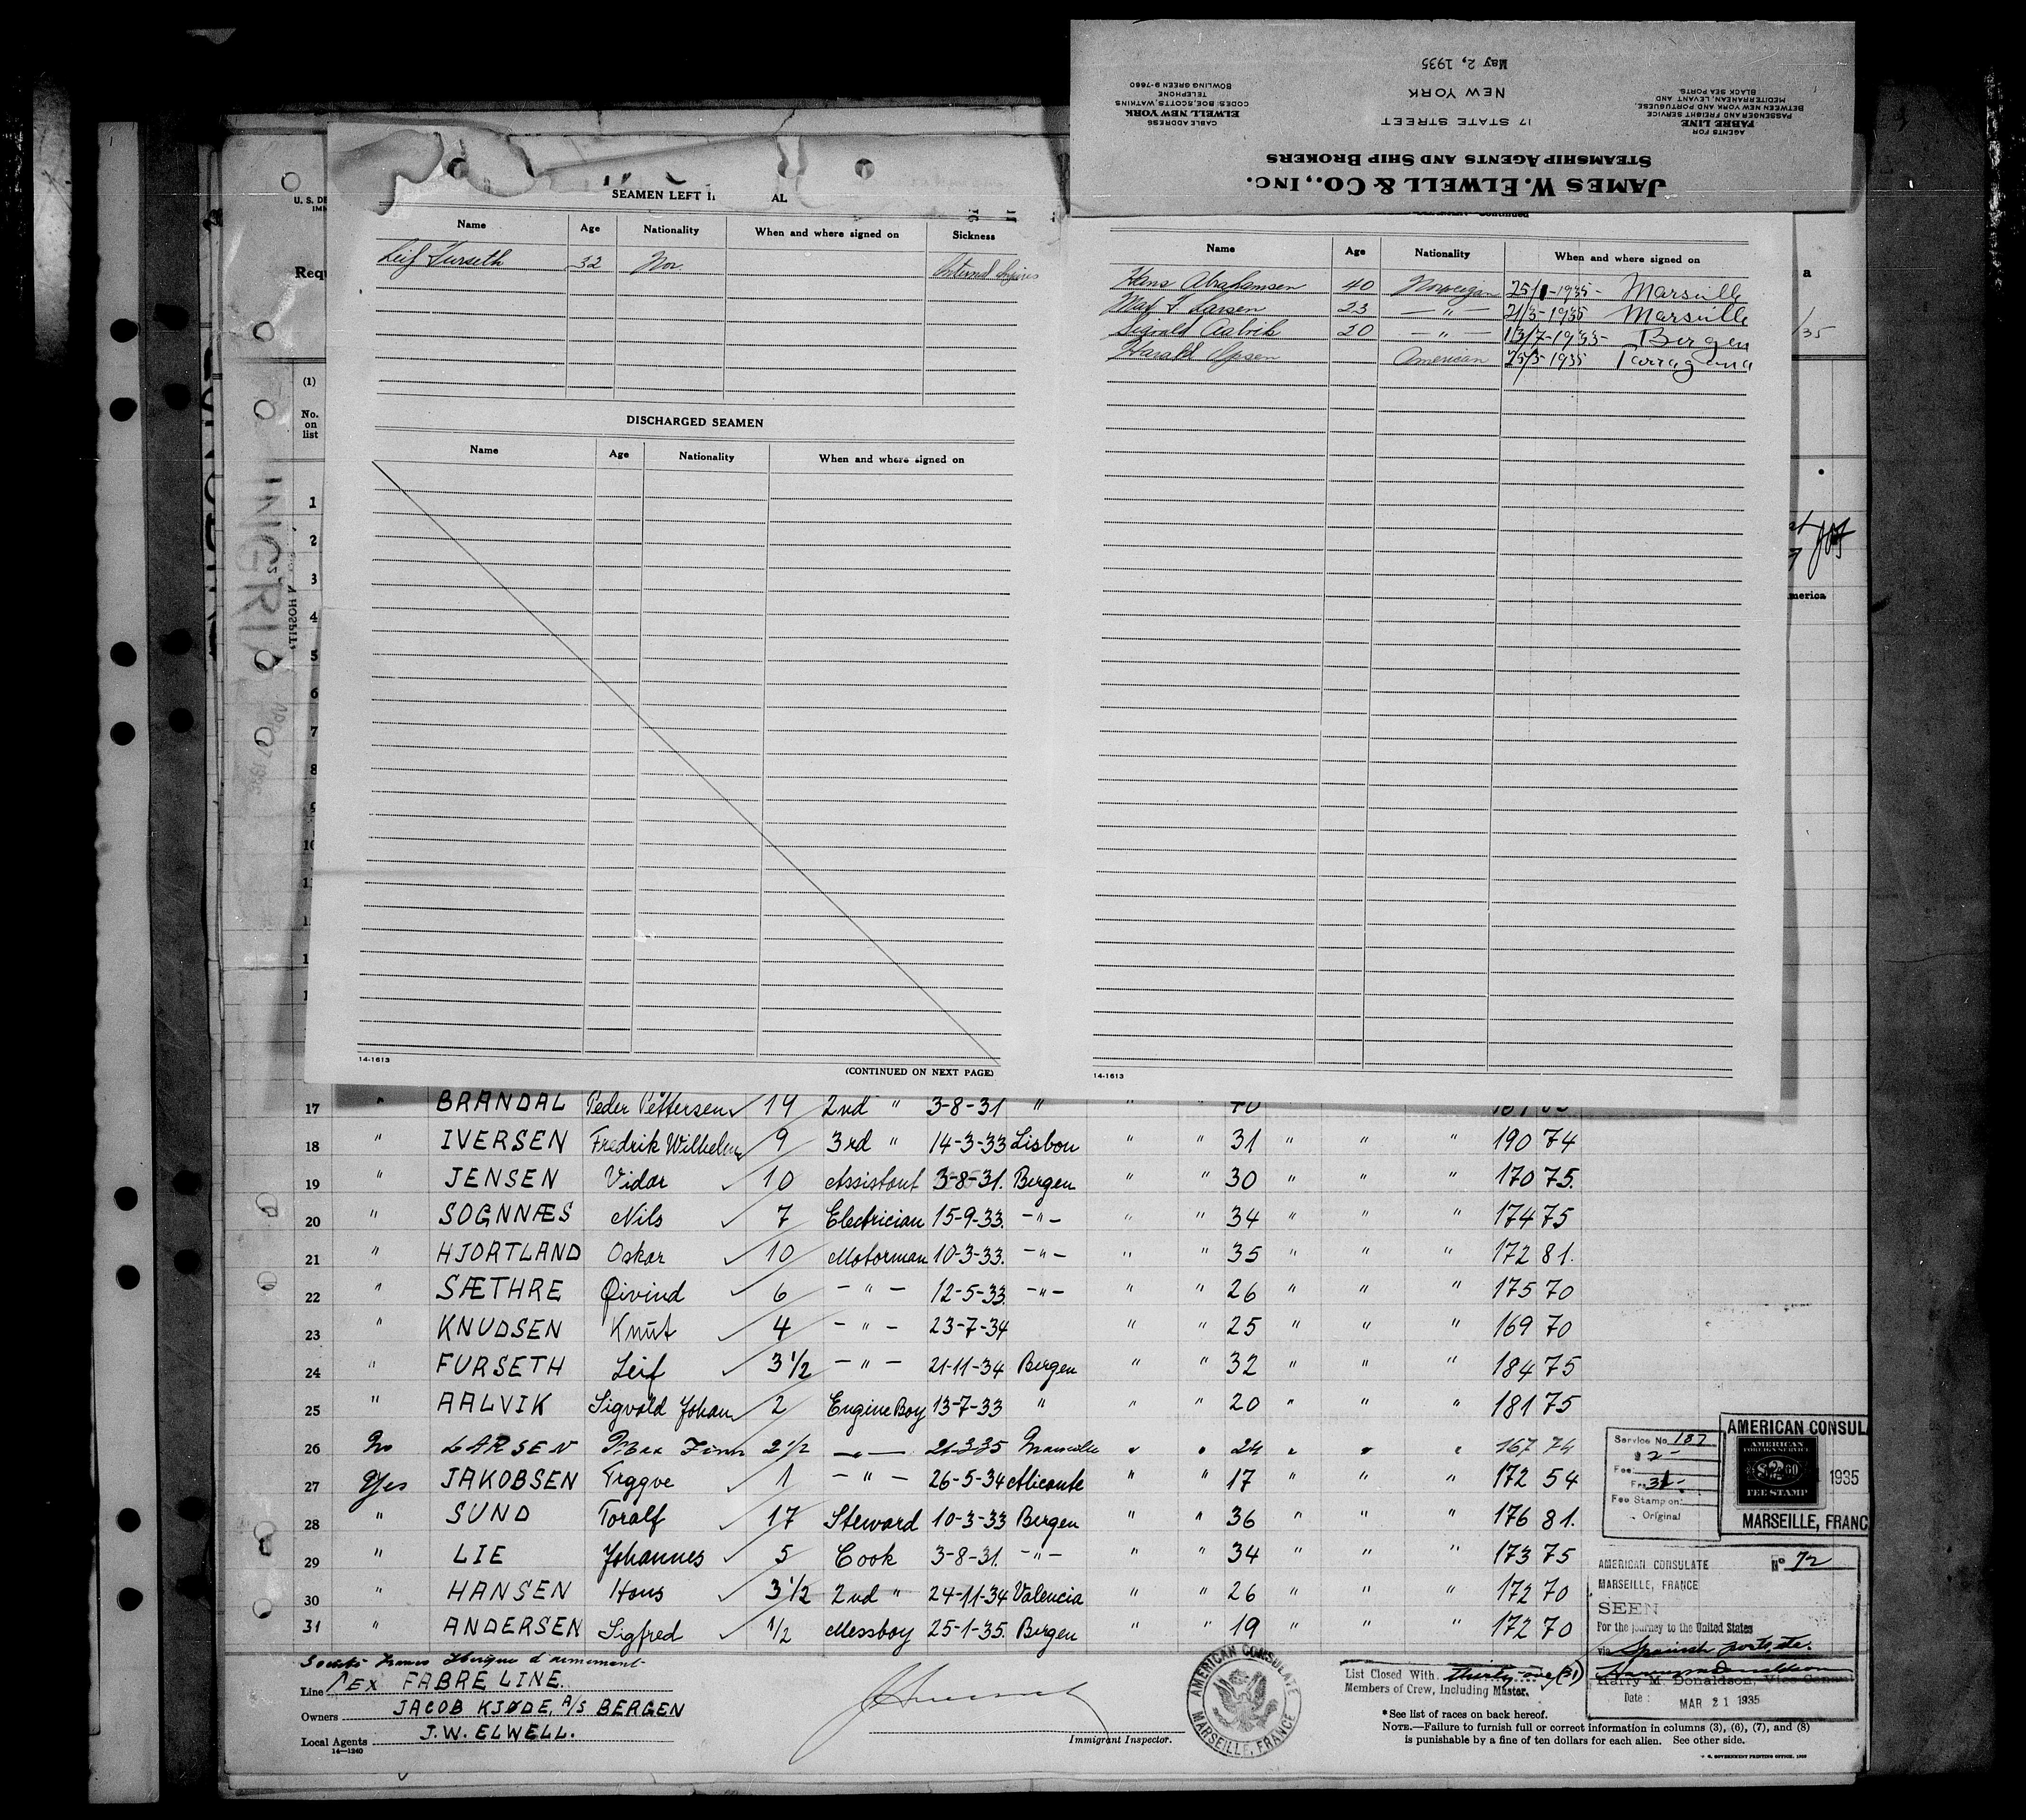 May 2, 1935
NEW YORK
17 STATE STREET
CABLE ADDRESS
ELWELL NEW YORK
CODES: BOE, SCOTTS, WATKINS
TELEPHONE
BOWLING GREEN 9-7660
AGENTS FOR
FABRE LINE
PASSENGER AND FREIGHT SERVICE
BETWEEN NEW YORK AND PORTUGUESE,
MEDITERRANEAN, LEVANT AND
BLACK SEA PORTS.
STEAMSHIP AGENTS AND SHIP BROKERS
JAMES W. ELWELL & CO., INC.
SEAMEN LEFT I AL
Name Age Nationality When and where signed on Sickness
Leif Furseth 32 Nor. Internal
DISCHARGED SEAMEN
Name Age Nationality When and where signed on
14-1613
(CONTINUED ON NEXT PAGE)
Continued
Name Age Nationality When and where signed on
Hans Abrahamsen 40 Norwegian 25/1-1935- Marseille
Max F Larsen 23 — " — 21/3-1935 Marseille
Sigvald Aalvik 20 — " — 13/7-1933- Bergen
Harald American 25/3-1935 Tarragona
14-1613
U. S. DE
Requ
(1)
No. on list
1
2
3
4
5
6
7
8
17 " BRANDAL Peder Pettersen 19 2nd " 3-8-31 " " 40
18 " IVERSEN Fredrik Wilhelm 9 3rd " 14-3-33 Lisbon " " 31 " " " 190 74
19 " JENSEN Vidar 10 Assistant 3-8-31. Bergen " " 30 " " " 170 75.
20 " SOGNNÆS Nils 7 Electrician 15-9-33. -"- " " 34 " " " 174 75
21 " HJORTLAND Oskar 10 Motorman 10-3-33. -"- " " 35 " " " 172 81.
22 " SÆTHRE Øivind 6 - " - 12-5-33. -"- " " 26 " " " 175 70
23 " KNUDSEN Knut 4 - " - 23-7-34 " " 25 " " " 169 70
24 " FURSETH Leif 3 1/2 - " - 21-11-34 Bergen " " 32 " " " 184 75
25 " AALVIK Sigvald Johan 2 Engine Boy 13-7-33 " " " 20 " " " 181 75
26 No LARSEN Max Finn 2 1/2 - " - 21-3-35 Marseille " " 24 " " " 167 74
27 Yes JAKOBSEN Trygve 1 - " - 26-5-34 Alicante " " 17 " " " 172 54
28 " SUND Toralf 17 Steward 10-3-33 Bergen " " 36 " " " 176 81.
29 " LIE Johannes 5 Cook 3-8-31. -"- " " 34 " " " 173 75
30 " HANSEN Hans 3 1/2 2nd " 24-11-34 Valencia " " 26 " " " 172 70
31 " ANDERSEN Sigfred 1/2 Messboy 25-1-35. Bergen " " 19 " " " 172 70
Line EX FABRE LINE.
Owners JACOB KJØDE, A/S BERGEN
Local Agents J. W. ELWELL.
14—1240
Immigrant Inspector.
AMERICAN CONSULATE
MARSEILLE, FRANCE
List Closed With thirty-one (31)
Members of Crew, Including Master.
*See list of races on back hereof.
NOTE.—Failure to furnish full or correct information in columns (3), (6), (7), and (8)
is punishable by a fine of ten dollars for each alien. See other side.
Service No. 187
$ 2-
Fee:
Frs
Fee Stamp on:
Original
AMERICAN CONSUL
AMERICAN
FOREIGN SERVICE
FEE STAMP
1935
MARSEILLE, FRANC
AMERICAN CONSULATE
No 72
MARSEILLE, FRANCE
SEEN
For the journey to the United States
via Spanish ports, etc.
Harry M. Donaldson, Vice Consul
Date: MAR 21 1935